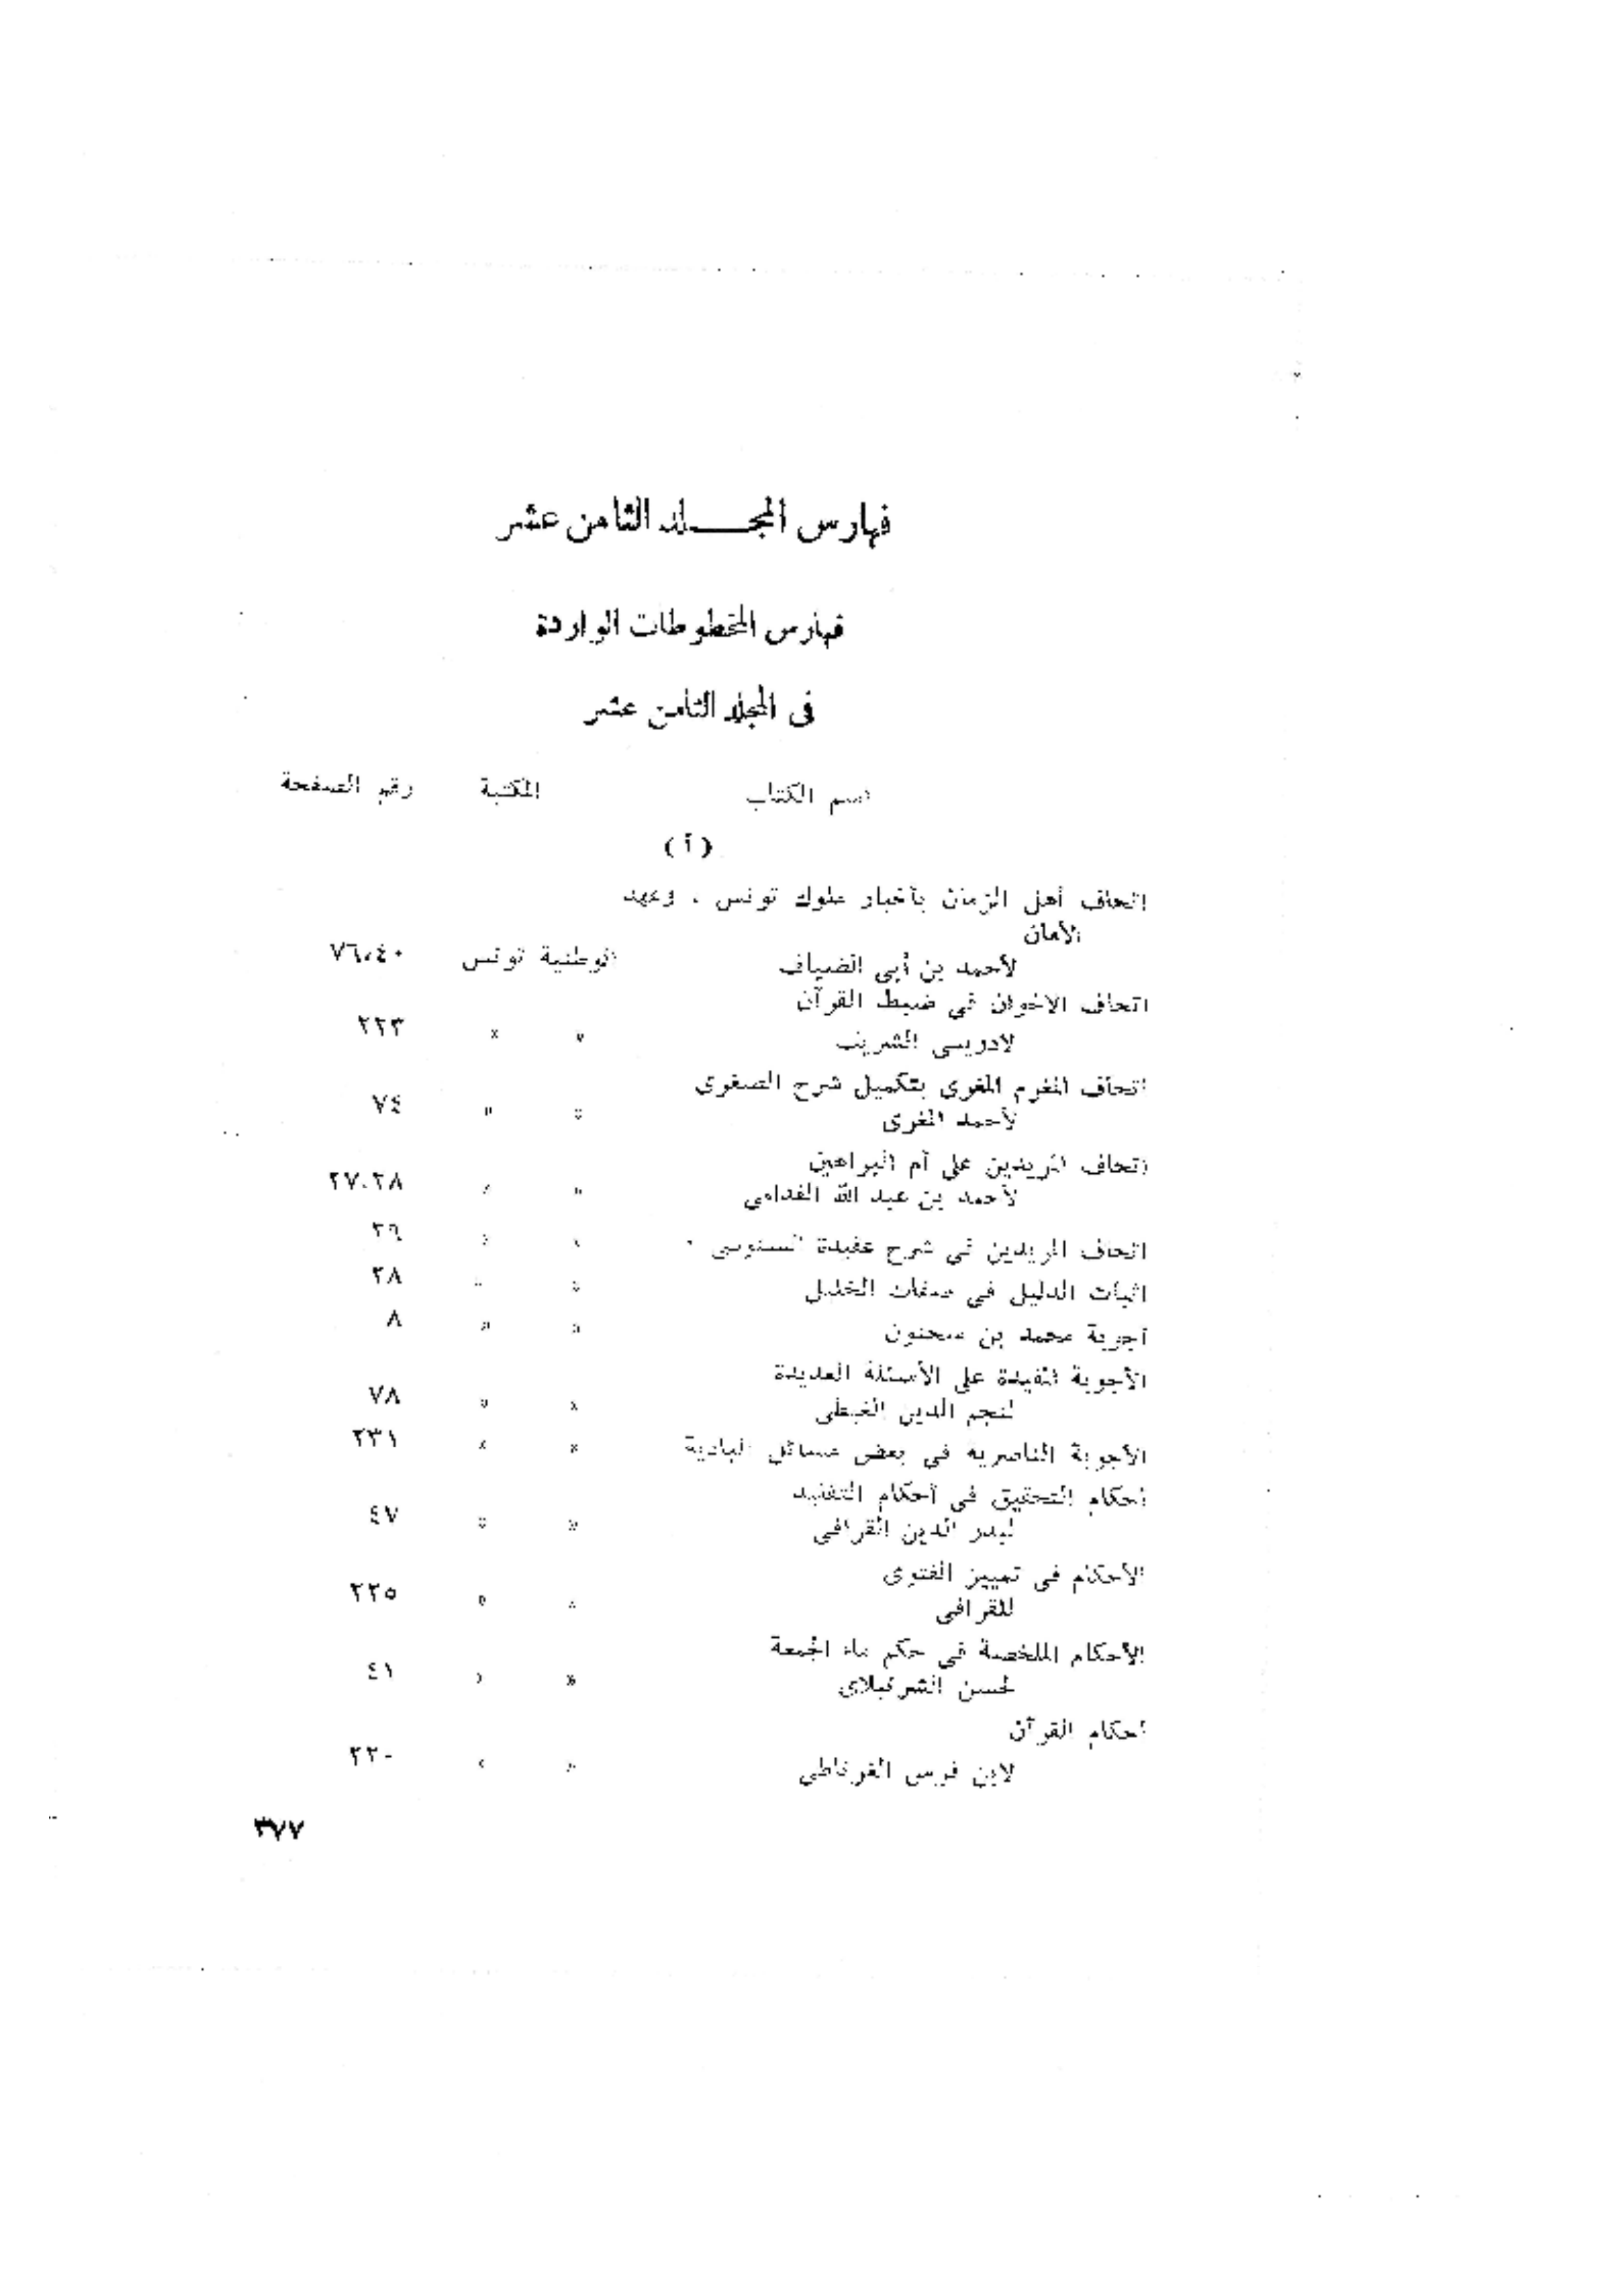 فهارس المجـــلد الثامن عشر
فهارس المخطوطات الواردة
فى المجلد الثامن عشر
اسم الكتاب المكتبة رقم الصفحة
( أ )
إتحاف أهل الزمان بأخبار ملوك تونس ، وعهد
الأمان
لأحمد بن أبى الضياف الوطنية تونس ٧٦،٤٠
اتحاف الاخوان في ضبط القرآن
لادريسى الشريف » » ٢٢٣
اتحاف المغرم المغرى بتكميل شرح الصغرى
لأحمد المغرى » » ٧٤
إتحاف المريدين على أم البراهين
لأحمد بن عبد الله الغدامى » » ٢٧،٢٨
اتحاف المريدين في شرح عقيدة السنوسى » » ٢٩
اثبات الدليل في صفات الخليل » » ٢٨
أجوبة محمد بن سحنون » » ٨
الأجوبة المفيدة على الأسئلة العديدة
لنجم الدين الغيطى » » ٧٨
الأجوبة الناصريه في بعض مسائل البادية » » ٢٣١
إحكام التحقيق في أحكام
لبدر الدين القرافى » » ٤٧
الأحكام في تمييز الفتوى
للقرافى » » ٢٢٥
الأحكام الملخصة في حكم ماء
لحسن الشرنبلاى » » ٤١
أحكام القرآن
لابن فرس الغرناطى » » ٢٢٠
٣٧٧